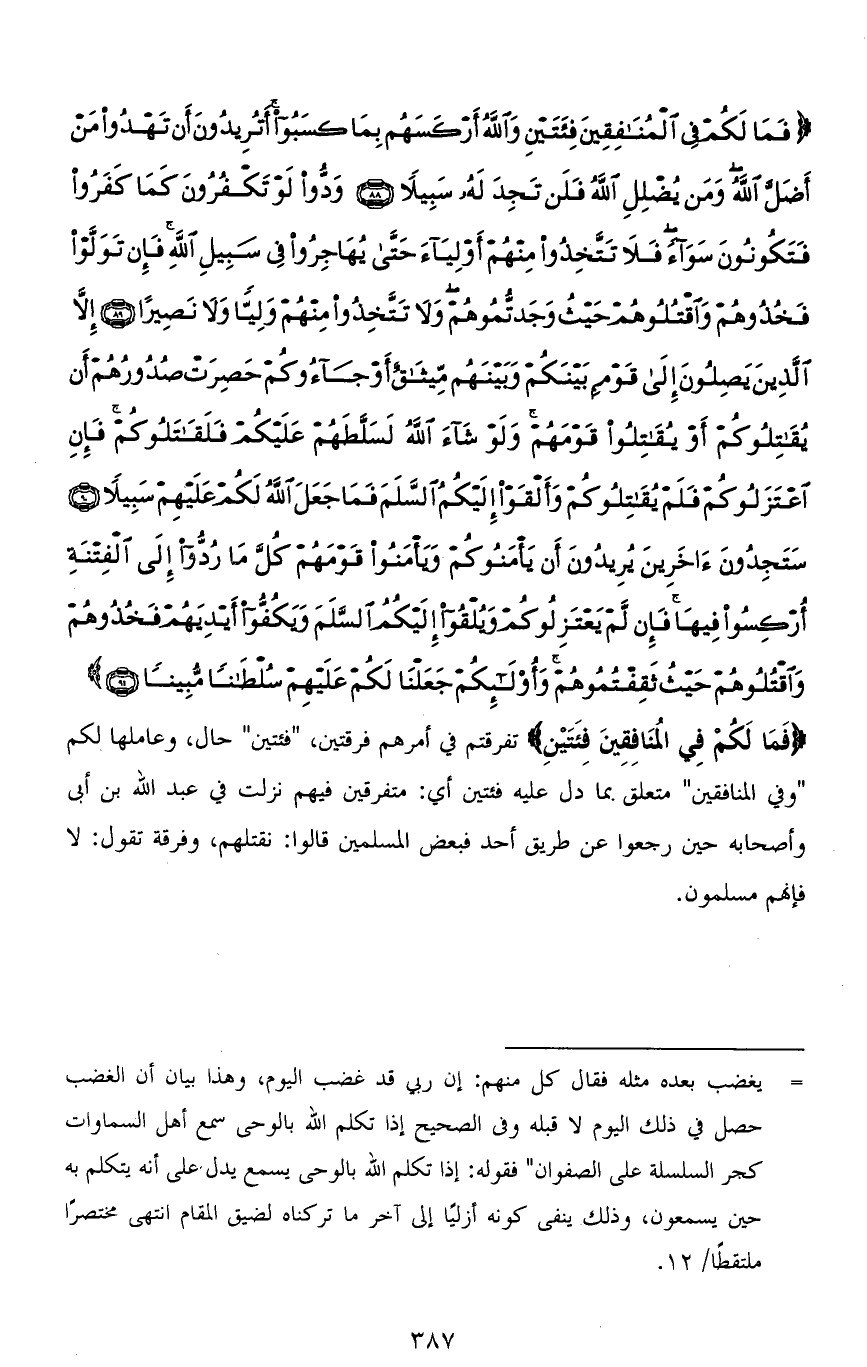 ﴿ فَمَا لَكُمْ فِى ٱلْمُنَـٰفِقِينَ فِئَتَيْنِ وَٱللَّهُ أَرْكَسَهُم بِمَا كَسَبُوٓا۟ ۚ أَتُرِيدُونَ أَن تَهْدُوا۟ مَنْ
أَضَلَّ ٱللَّهُ ۖ وَمَن يُضْلِلِ ٱللَّهُ فَلَن تَجِدَ لَهُۥ سَبِيلًا ﴿٨٨﴾ وَدُّوا۟ لَوْ تَكْفُرُونَ كَمَا كَفَرُوا۟
فَتَكُونُونَ سَوَآءً ۖ فَلَا تَتَّخِذُوا۟ مِنْهُمْ أَوْلِيَآءَ حَتَّىٰ يُهَاجِرُوا۟ فِى سَبِيلِ ٱللَّهِ ۚ فَإِن تَوَلَّوْا۟
فَخُذُوهُمْ وَٱقْتُلُوهُمْ حَيْثُ وَجَدتُّمُوهُمْ ۖ وَلَا تَتَّخِذُوا۟ مِنْهُمْ وَلِيًّا وَلَا نَصِيرًا ﴿٨٩﴾ إِلَّا
ٱلَّذِينَ يَصِلُونَ إِلَىٰ قَوْمٍۭ بَيْنَكُمْ وَبَيْنَهُم مِّيثَـٰقٌ أَوْ جَآءُوكُمْ حَصِرَتْ صُدُورُهُمْ أَن
يُقَـٰتِلُوكُمْ أَوْ يُقَـٰتِلُوا۟ قَوْمَهُمْ ۚ وَلَوْ شَآءَ ٱللَّهُ لَسَلَّطَهُمْ عَلَيْكُمْ فَلَقَـٰتَلُوكُمْ ۚ فَإِنِ
ٱعْتَزَلُوكُمْ فَلَمْ يُقَـٰتِلُوكُمْ وَأَلْقَوْا۟ إِلَيْكُمُ ٱلسَّلَمَ فَمَا جَعَلَ ٱللَّهُ لَكُمْ عَلَيْهِمْ سَبِيلًا ﴿٩٠﴾
سَتَجِدُونَ ءَاخَرِينَ يُرِيدُونَ أَن يَأْمَنُوكُمْ وَيَأْمَنُوا۟ قَوْمَهُمْ كُلَّ مَا رُدُّوٓا۟ إِلَى ٱلْفِتْنَةِ
أُرْكِسُوا۟ فِيهَا ۚ فَإِن لَّمْ يَعْتَزِلُوكُمْ وَيُلْقُوٓا۟ إِلَيْكُمُ ٱلسَّلَمَ وَيَكُفُّوٓا۟ أَيْدِيَهُمْ فَخُذُوهُمْ
وَٱقْتُلُوهُمْ حَيْثُ ثَقِفْتُمُوهُمْ ۚ وَأُو۟لَـٰٓئِكُمْ جَعَلْنَا لَكُمْ عَلَيْهِمْ سُلْطَـٰنًا مُّبِينًا ﴿٩١﴾ ﴾
﴿فَمَا لَكُمْ فِي الْمُنَافِقِينَ فِئَتَيْنِ﴾ تفرقتم في أمرهم فرقتين، "فئتين" حال، وعاملها لكم
"وفي المنافقين" متعلق بما دل عليه فئتين أي: متفرقين فيهم نزلت في عبد الله بن أبى
وأصحابه حين رجعوا عن طريق أحد فبعض المسلمين قالوا: نقتلهم، وفرقة تقول: لا
فإنهم مسلمون.
= يغضب بعده مثله فقال كل منهم: إن ربي قد غضب اليوم، وهذا بيان أن الغضب
حصل في ذلك اليوم لا قبله وفى الصحيح إذا تكلم الله بالوحى سمع أهل السماوات
كجر السلسلة على الصفوان" فقوله: إذا تكلم الله بالوحى يسمع يدل على أنه يتكلم به
حين يسمعون، وذلك ينفى كونه أزليًا إلى آخر ما تركناه لضيق المقام انتهى مختصرًا
ملتقطًا/ ١٢.
٣٨٧